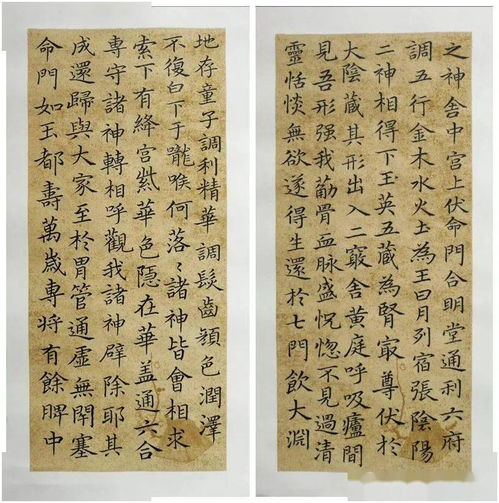 地存童子調利精華調髮齒顏色潤澤
不復白下于嚨喉何落〻諸神皆會相求
索下有絳宮紫華色隱在華盖通六合
專守諸神轉相呼觀我諸神辟除耶其
成還歸與大家至於胃管通虛無閇塞
命門如王都壽萬歲專將有餘脾中
之神舍中宮上伏命門合明堂通利六府
調五行金木水火土為王日月列宿張陰陽
二神相得下玉英五藏為腎冣尊伏於
大陰藏其形出入二竅舍黃庭呼吸廬間
見吾形强我筋骨血脉盛怳惚不見過清
靈恬惔無欲遂得生還於七門飲大淵